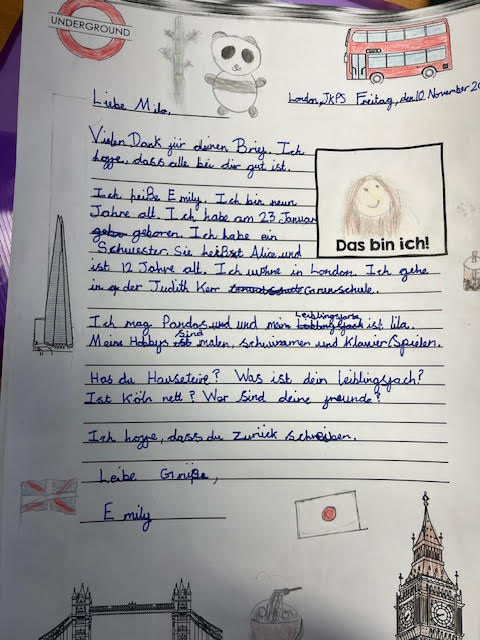 UNDERGROUND
London, JKPS Freitag, den 10 November 20
Liebe Milo,
Vielen Dank für deinen Brief. Ich
hoffe, dass alle bei dir gut ist.
Ich heiße Emily. Ich bin neun
Jahre alt. Ich habe am 23 Januar
geboren. Ich habe ein
Schwester. Sie heißst Alice und
ist 12 Jahre alt. Ich wohne in London. Ich gehe
in der Judith Kerr
Ich mag Pandas und und mein Leiblingsfarbe ist lila.
Meine Hobbys sind malen, schwimmen und Klavier Spielen.
Has du Hausteire? Was ist dein leiblingsfach?
Ist Köln nett? Wer sind deine freunde?
Ich hoffe, dass du zurück schreiben.
Leibe Grüße,
Emily
Das bin ich!